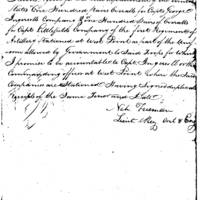 States One Hundred pairs overalls for Capt George
Ingersolls Company & One Hundred pairs of overalls
for Capt Littlefields Company of the first Regiment of
Artillery Stationed at West Point as part of the
allowed by Government to said Troops for which
I promise to be accountable to Capt Ingersoll or the
Commanding officer at West Point when the said
Companies are Stationed Having Signed duplicate
Receipts of the Same Tenor and Date
Neh Freeman
Lieut Regt Art & Eng